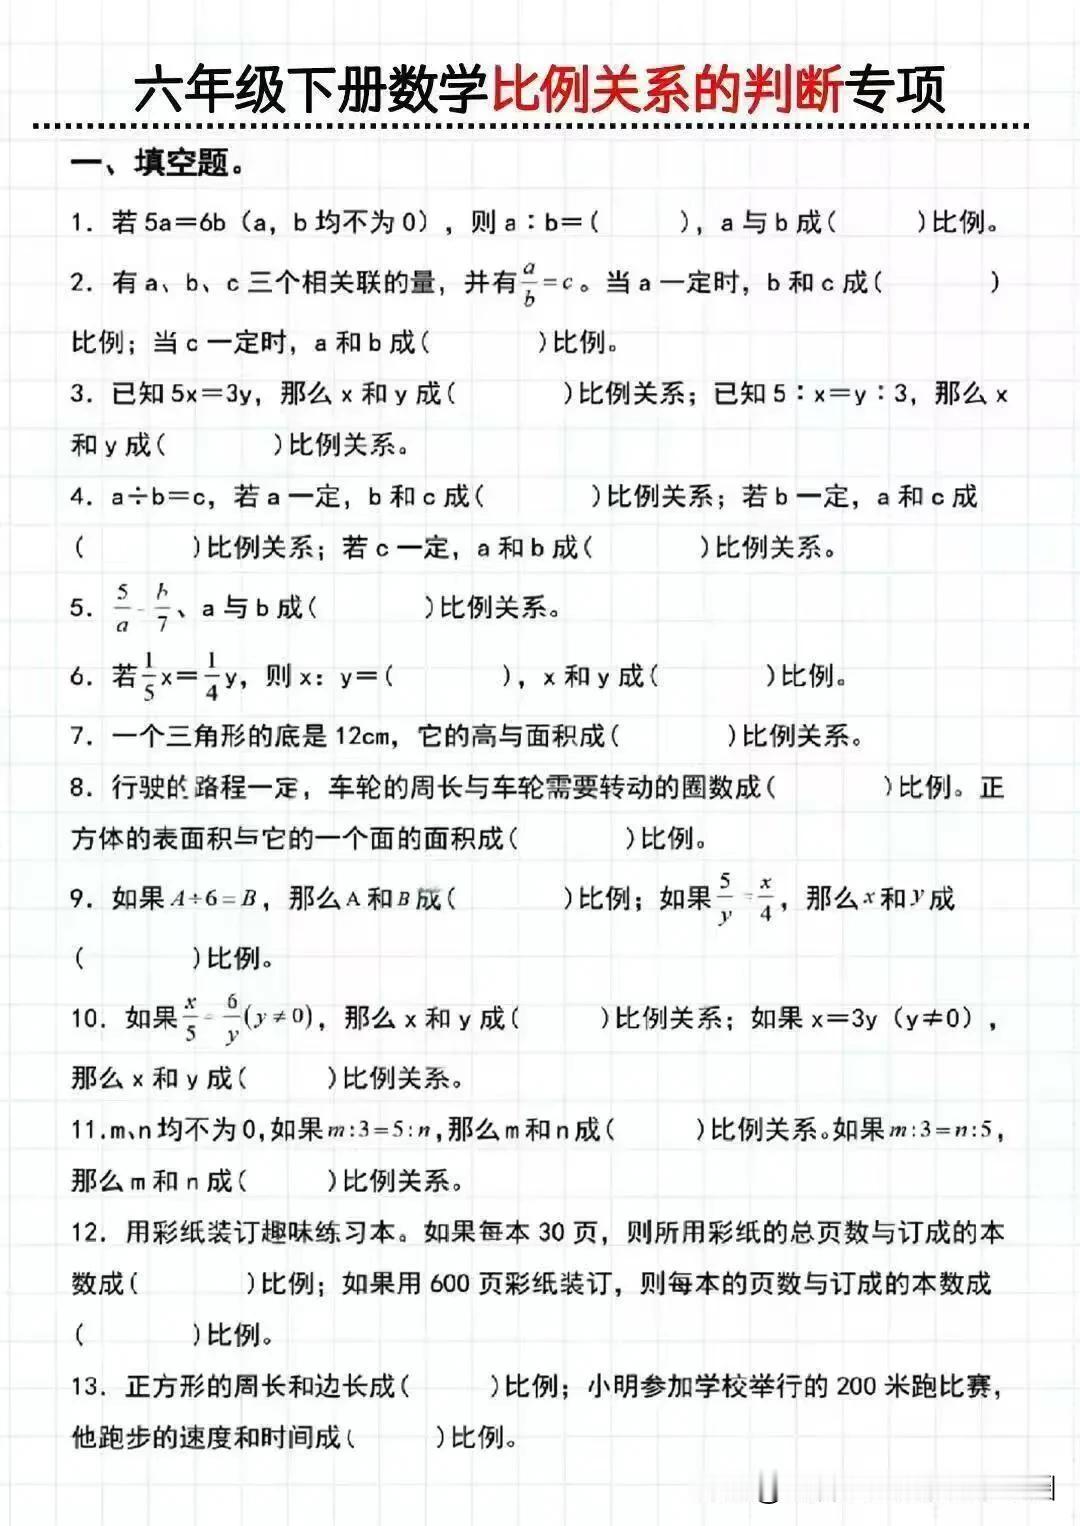 六年级下册数学比例关系的判断专项
一、填空题。
1. 若 5a=6b（a, b 均不为 0）, 则 a∶b=(      ), a 与 b 成(      )比例。
2. 有 a、b、c 三个相关联的量, 并有a/b=c。当 a 一定时, b 和 c 成(        )
比例；当 c 一定时, a 和 b 成(        )比例。
3. 已知 5x=3y, 那么 x 和 y 成(        )比例关系；已知 5∶x=y∶3, 那么 x
和 y 成(        )比例关系。
4. a÷b=c, 若 a 一定, b 和 c 成(        )比例关系；若 b 一定, a 和 c 成
(        )比例关系；若 c 一定, a 和 b 成(        )比例关系。
5. 5/a-b/7、a 与 b 成(        )比例关系。
6. 若1/5x=1/4y, 则 x: y=(        ), x 和 y 成(        )比例。
7. 一个三角形的底是 12cm, 它的高与面积成(        )比例关系。
8. 行驶的路程一定, 车轮的周长与车轮需要转动的圈数成(        )比例。正
方体的表面积与它的一个面的面积成(        )比例。
9. 如果 A÷6=B, 那么 A 和 B 成(        )比例；如果5/y=x/4, 那么 x 和 y 成
(        )比例。
10. 如果x/5-6/y(y≠0), 那么 x 和 y 成(      )比例关系；如果 x=3y（y≠0）,
那么 x 和 y 成(      )比例关系。
11.m、n 均不为 0,如果 m:3=5:n,那么 m 和 n 成(      )比例关系。如果 m:3=n:5,
那么 m 和 n 成(      )比例关系。
12. 用彩纸装订趣味练习本。如果每本 30 页, 则所用彩纸的总页数与订成的本
数成(        )比例；如果用 600 页彩纸装订, 则每本的页数与订成的本数成
(        )比例。
13. 正方形的周长和边长成(      )比例；小明参加学校举行的 200 米跑比赛,
他跑步的速度和时间成(      )比例。